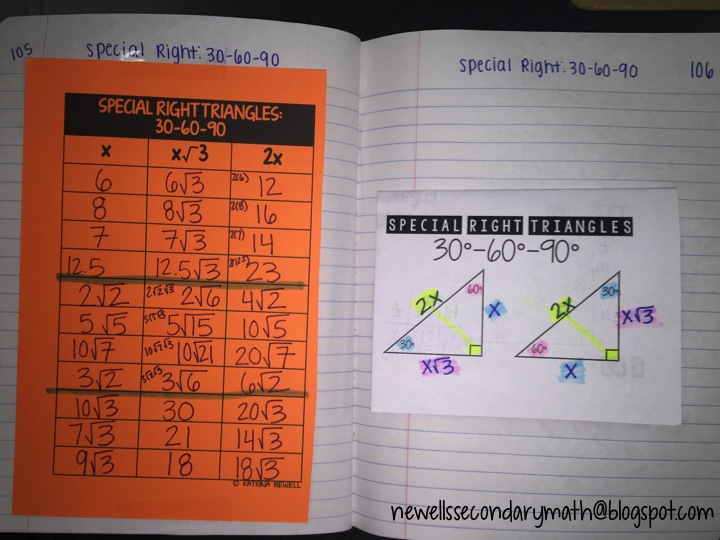 105
Special Right: 30-60-90
SPECIAL RIGHT TRIANGLES:
30-60-90
x x√3 2x
6 6√3 2(6) 12
8 8√3 2(8) 16
7 7√3 2(7) 14
12.5 12.5√3 2(12.5) 23
2√2 2√2√3 2√6 4√2
5√5 5√5√3 5√15 10√5
10√7 10√7√3 10√21 20√7
3√2 3√2√3 3√6 6√2
10√3 30 20√3
7√3 21 14√3
9√3 18 18√3
© KATRINA NEWELL
Special Right: 30-60-90 106
SPECIAL RIGHT TRIANGLES
30°-60°-90°
60°
2x
x
30°
x√3
30°
2x
x√3
60°
x
newellssecondarymath@blogspot.com